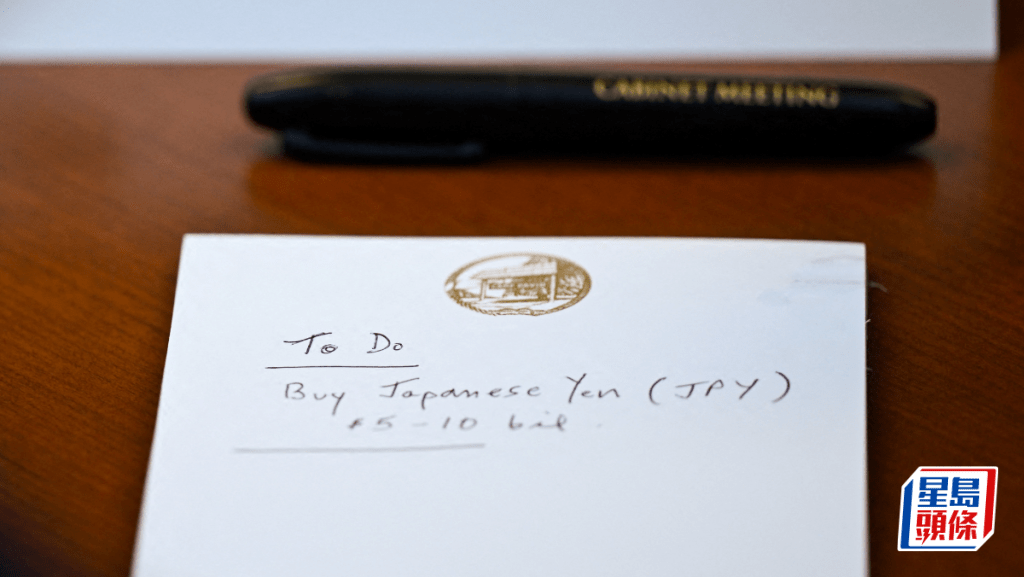 CABINET MEETING
To Do
Buy Japanese Yen (JPY)
$5-10 bil
星島
頭條